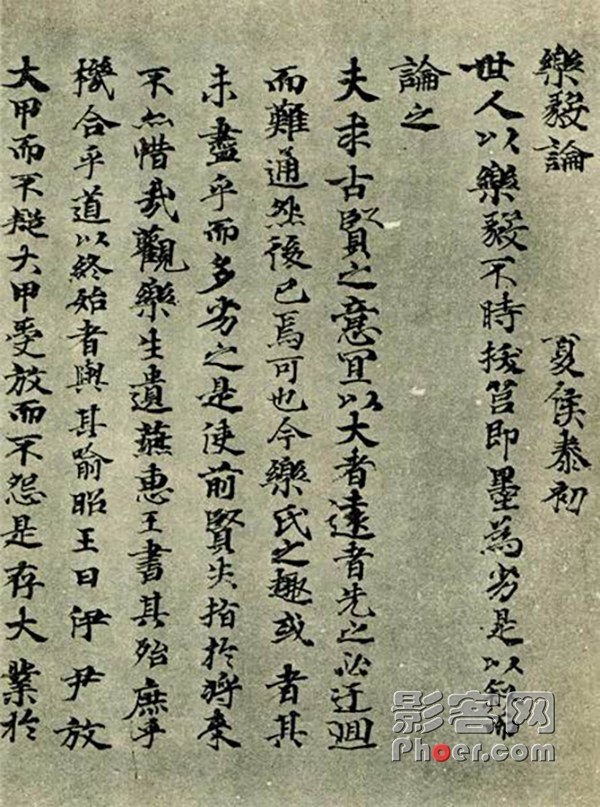 樂毅論 夏侯泰初
世人以樂毅不時拔莒即墨為劣是以叙而
論之
夫求古賢之意宜以大者遠者先之必迂迴
而難通然後已焉可也今樂氏之趣或者其
未盡乎而多劣之是使前賢失指於將來
不亦惜哉觀樂生遺燕惠王書其殆庶乎
機合乎道以終始者與其喻昭王曰伊尹放
大甲而不疑大甲受放而不怨是存大業於
影客网
Phoer.com